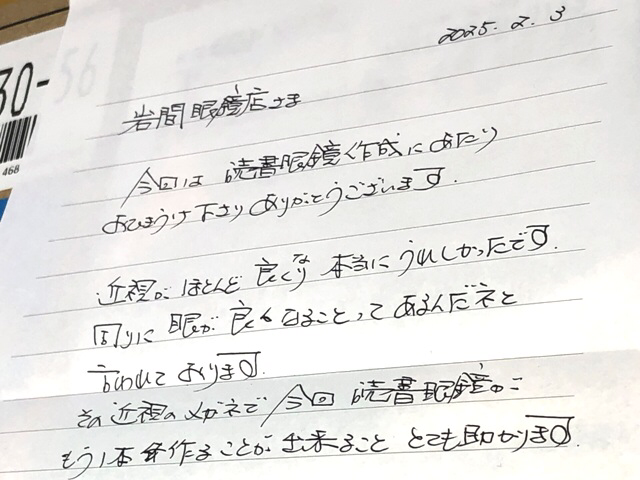 30-56
468
2025. 2. 3
岩間眼鏡店さま
今回は 読書眼鏡作成にあたり
おひきうけ下さり ありがとうございます.
近視が ほとんど 良くなり 本当に うれしかったです.
回りに 眼が 良くなることって あるんだネと
言われて おります.
その近視のメガネで 今回 読書眼鏡の
もう1本 作ることが 出来ること とても助かります.